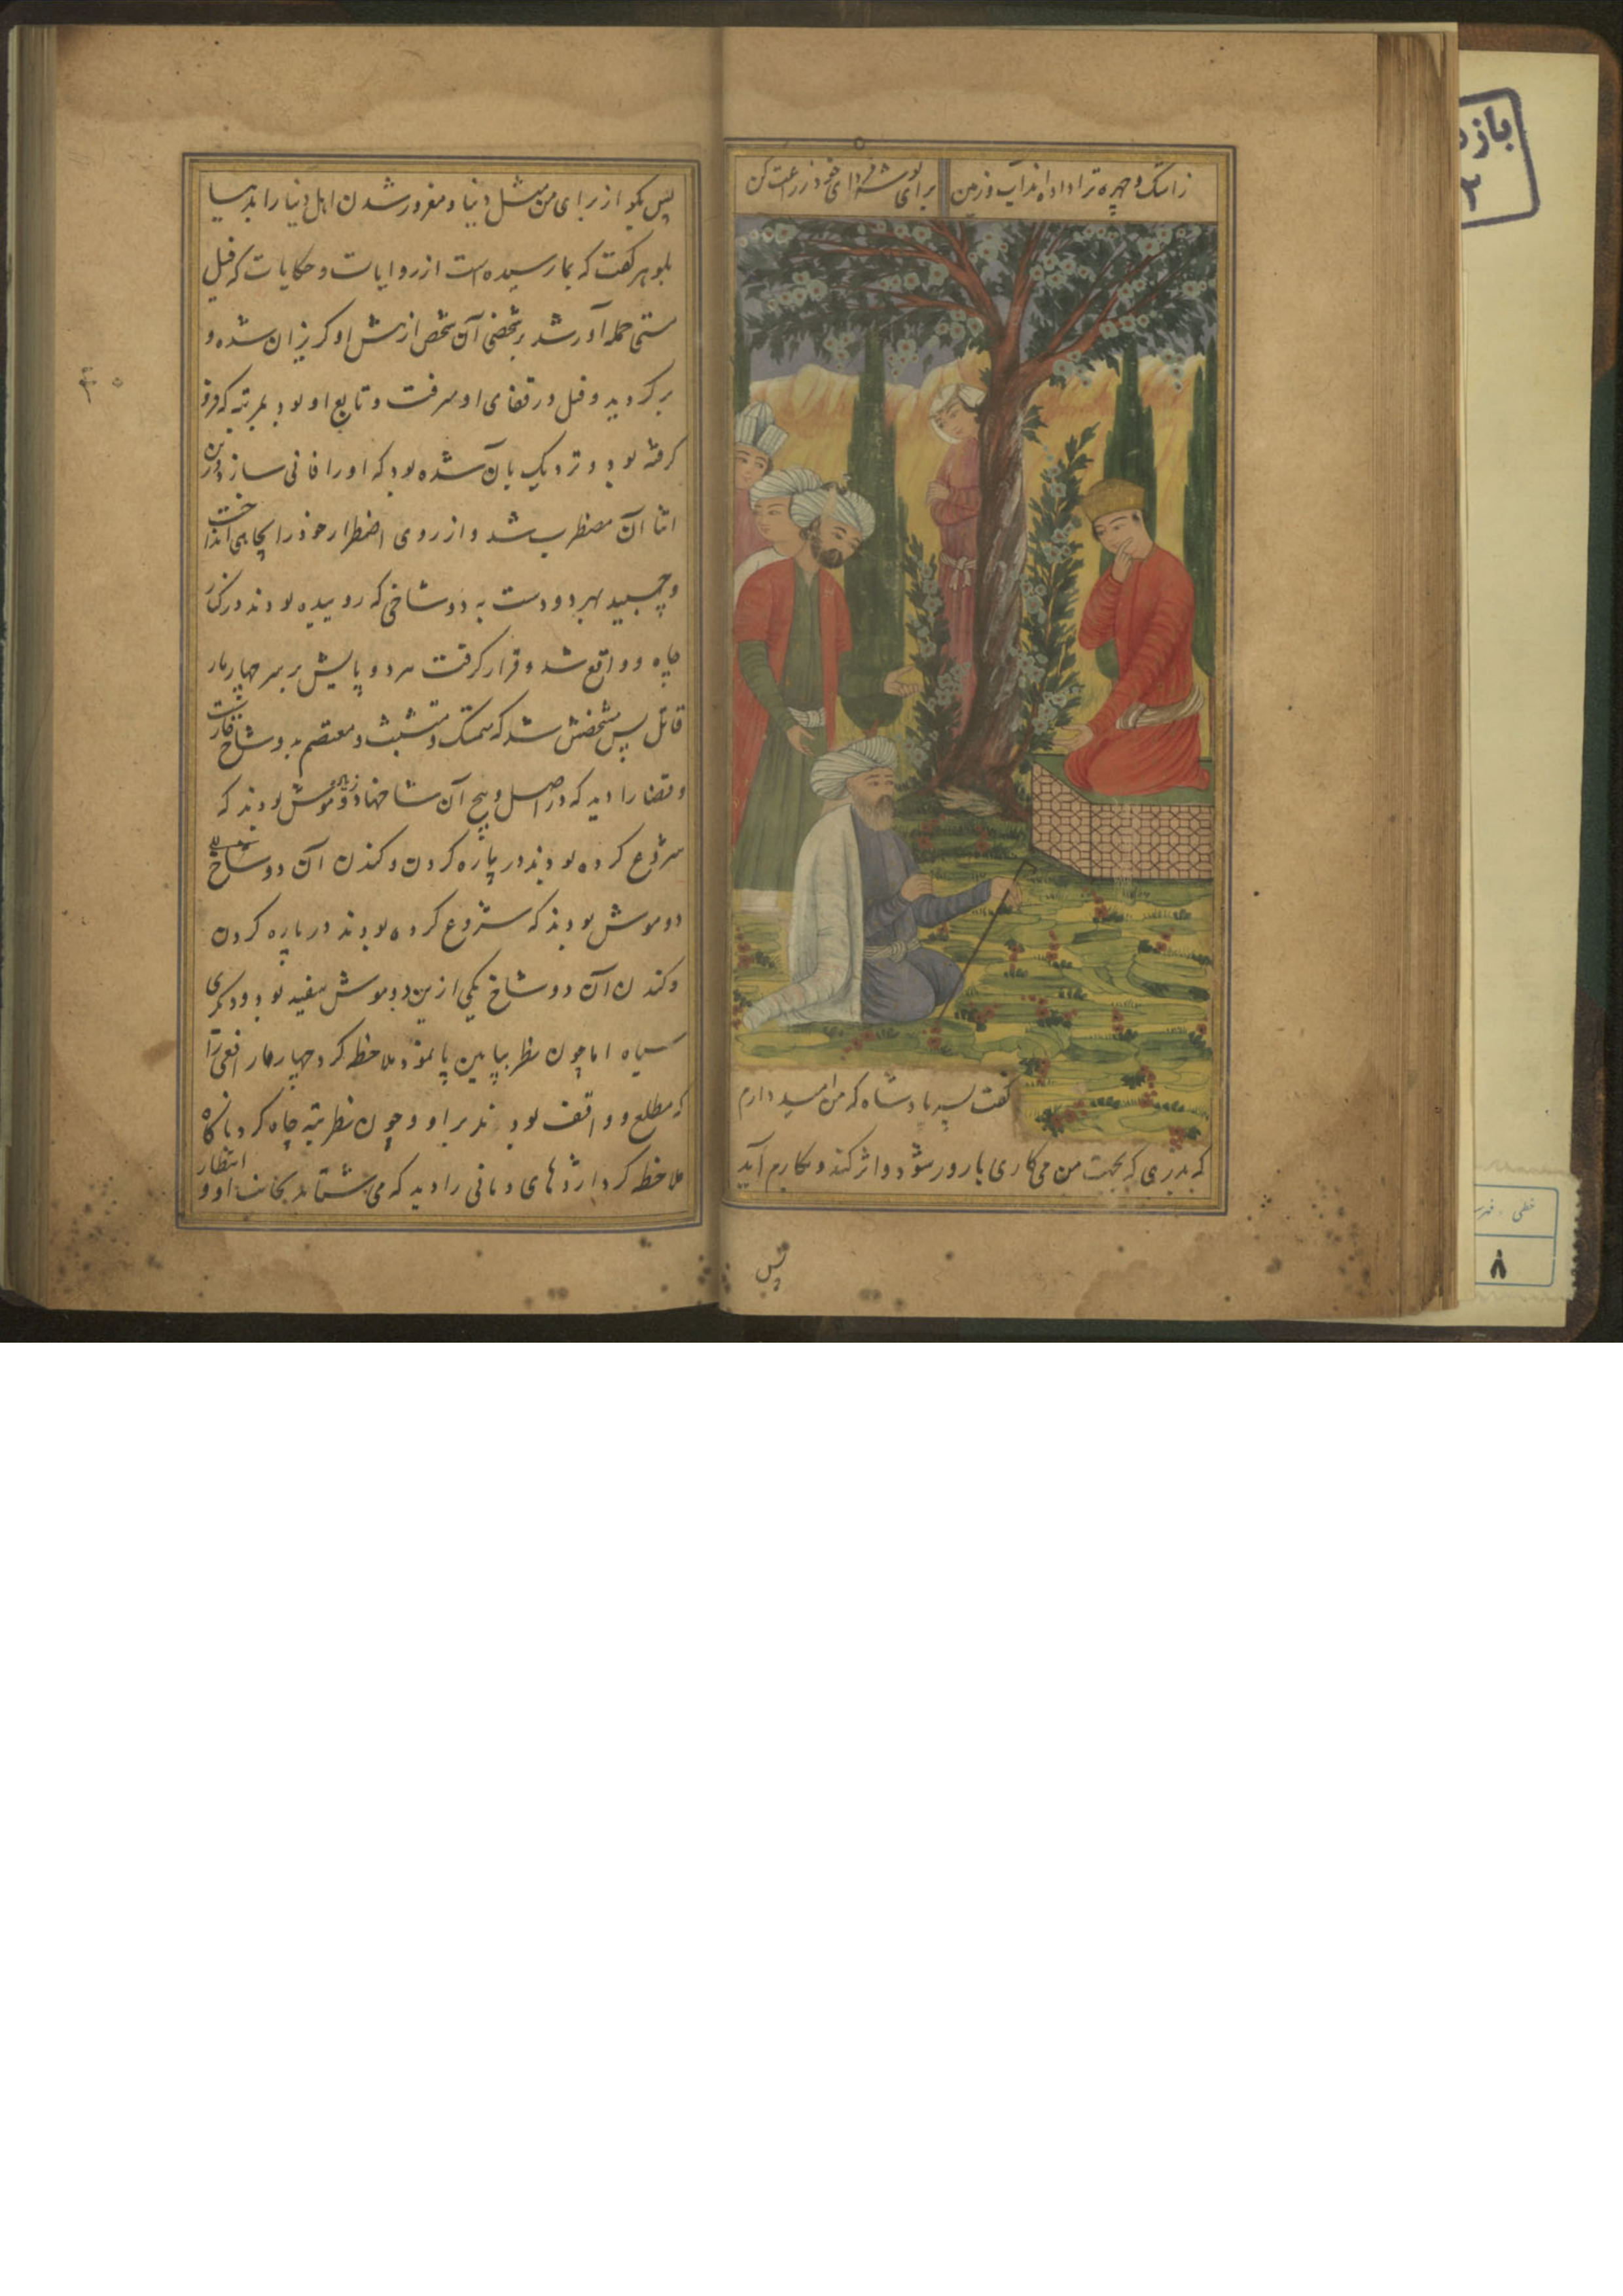 زاشک و چهره ترا داده اند آب و زمین
برای توشه فردای خود زراعت کن
گفت پسر پادشاه که من امید دارم
که بذری که بجهت من می کاری بارور شود و اثر کند و بکارم آید
پس
پس بگو از برای من مثل دنیا و مغرور شدن اهل دنیا را بدنیا
بلوهر گفت که بما رسیده است از روایات و حکایات که فیل
مستی حمله آور شد بر شخصی آن شخص از پیش او گریزان شده و
برگردید و فیل در قفای او میرفت و تابع او بود بمرتبه که فرو
گرفته بود و نزدیک بآن شده بود که او را فانی سازد درین
اثنا آن مضطرب شد و از روی اضطرار خود را بچاهی انداخت
و چسبید بهر دو دست به دو شاخی که روییده بودند در کنار
چاه و واقع شد و قرار گرفت هر دو پایش بر سر چهار مار
قاتل پس مشخصش شد که متمسک و متشبث و معتصم بدو شاخ
و قضا را دید که در اصل و بیخ آن شاخها دو موش بودند که
شروع کرده بودند در پاره کردن و کندن آن دو شاخ
دو موش بودند که شروع کرده بودند در پاره کردن
و کندن آن دو شاخ یکی ازین دو موش سفید بود و دیگری
سیاه اما چون نظر بپایین پا نمود ملاحظه کرد چهار مار افعی را
که مطلع و واقف بودند بر او و چون نظر بته چاه کرد ناگاه
ملاحظه کرد اژدهای دمانی را دید که می شتابد بجانب او و انتظار
بازد
۲
خطی - فهر
۸